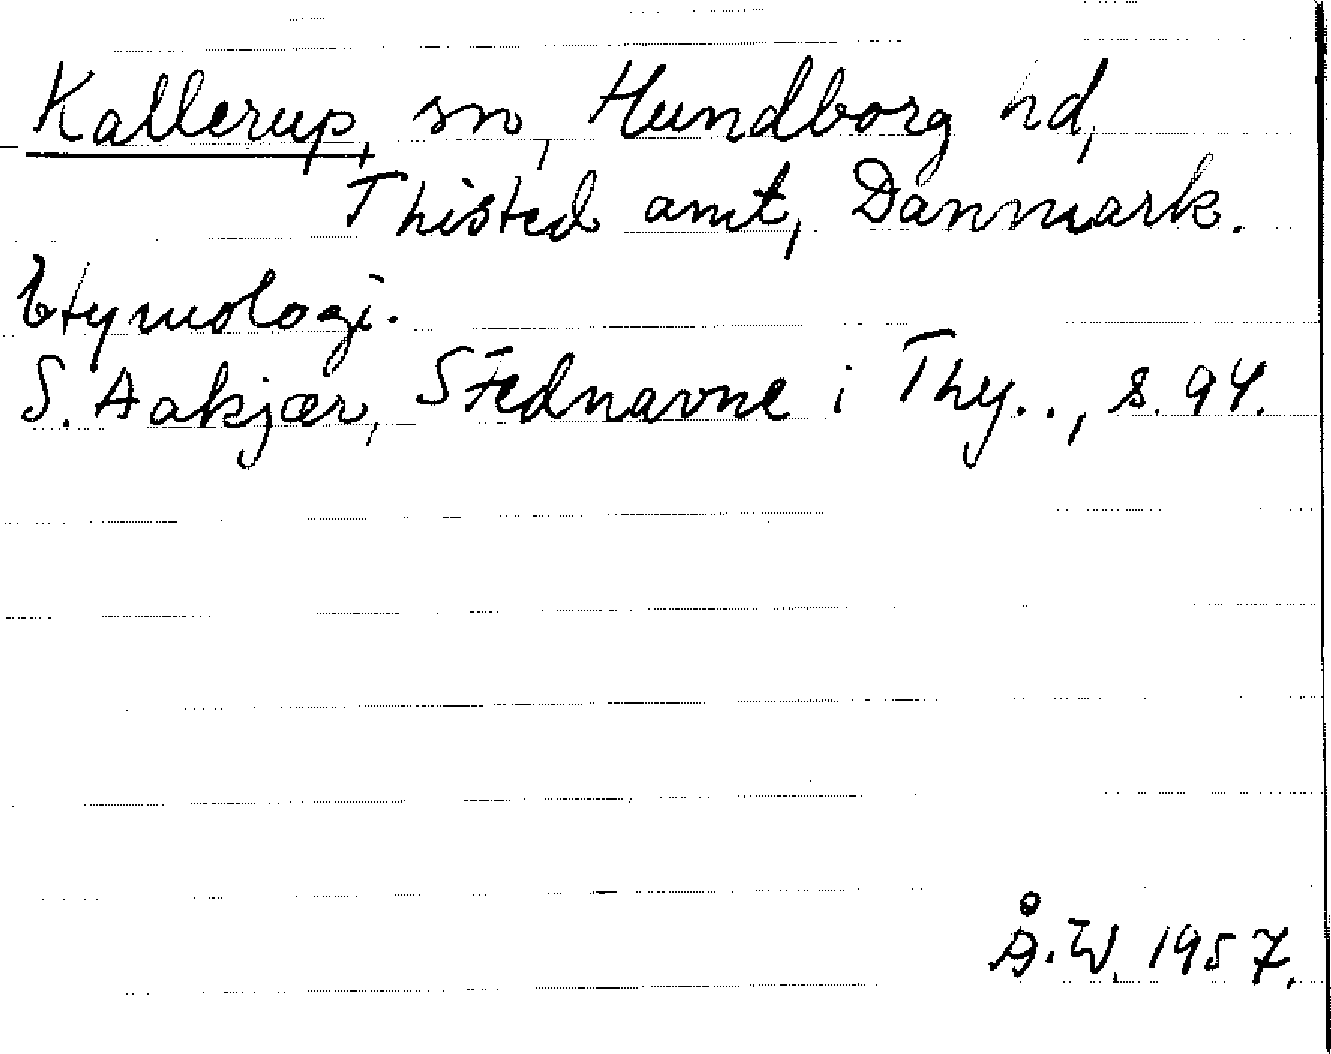 Kallerup, sn, Hundborg hd,
Thisted amt, Danmark.
Etymologi.
S. Aakjær, Stednavne i Thy.., s. 94.
Å.W. 1957.